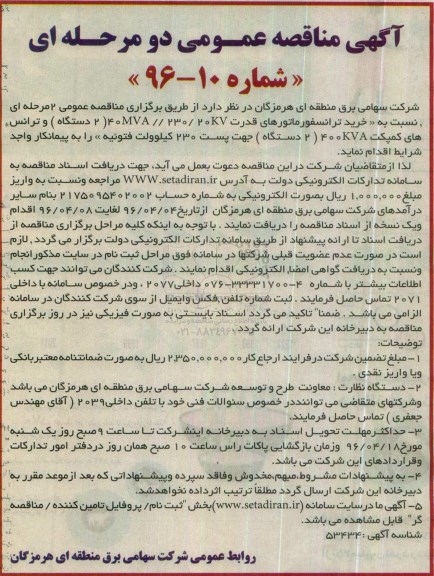 آگهی مناقصه عمومی دو مرحله ای
« شماره ۱۰-۹۶ »
شرکت سهامی برق منطقه ای هرمزگان در نظر دارد از طریق برگزاری مناقصه عمومی ۲مرحله ای
، نسبت به « خرید ترانسفورماتورهای قدرت ۴۰MVA // ۲۳۰/ ۲۰KV( ۲ دستگاه ) و ترانس
های کمپکت ۴۰۰KVA ( ۲ دستگاه ) جهت پست ۲۳۰ کیلوولت فتوئیه » را به پیمانکار واجد
شرایط اقدام نماید.
لذا ازمتقاضیان شرکت دراین مناقصه دعوت بعمل می آید، جهت دریافت اسناد مناقصه به
سامانه تدارکات الکترونیکی دولت به آدرس WWW.setadiran.ir مراجعه ونسبت به واریز
مبلغ ۱,۰۰۰,۰۰۰ ریال بصورت الکترونیکی به شماره حساب ۲۱۷۵۰۹۵۴۰۲۰۰۲ بنام سایر
درآمدهای شرکت سهامی برق منطقه ای هرمزگان ازتاریخ ۹۶/۰۴/۰۴ لغایت ۹۶/۰۴/۰۸ اقدام
ویک نسخه از اسناد مناقصه را دریافت نمایند . با توجه به اینکه کلیه مراحل برگزاری مناقصه از
دریافت اسناد تا ارائه پیشنهاد از طریق سامانه تدارکات الکترونیکی دولت برگزار می گردد , لازم
است در صورت عدم عضویت قبلی شرکتها در سامانه فوق مراحل ثبت نام در سایت مذکورانجام
ونسبت به دریافت گواهی امضا, الکترونیکی اقدام نمایند . شرکت کنندگان می توانند جهت کسب
اطلاعات بیشتر با شماره ۴-۳۳۳۳۱۷۰۰-۰۷۶ داخلی۲۰۷۷ , ودر خصوص سامانه با داخلی
۲۰۷۱ تماس حاصل فرمایند . ثبت شماره تلفن,فکس وایمیل از سوی شرکت کنندگان در سامانه
الزامی می باشد . ضمنا" تاکید می گردد اسناد بایستی به صورت فیزیکی نیز در روز برگزاری
مناقصه به دبیرخانه این شرکت ارائه گردد .
توضیحات:
۱- مبلغ تضمین شرکت در فرایند ارجاع کار ۲,۳۵۰,۰۰۰,۰۰۰ ریال به صورت ضمانتنامه معتبر بانکی
ویا واریز نقدی .
۲- دستگاه نظارت : معاونت طرح و توسعه شرکت سهامی برق منطقه ای هرمزگان می باشد
وشرکتهای متقاضی می توانند در خصوص سئوالات فنی خود با تلفن داخلی۲۰۳۹ ( آقای مهندس
جعفری ) تماس حاصل فرمایند.
۳- حداکثر مهلت تحویل اسناد به دبیرخانه اینشرکت تا ساعت ۹صبح روز یک شنبه
مورخ۹۶/۰۴/۱۸ وزمان بازگشایی پاکات راس ساعت ۱۰ صبح همان روز دردفتر امور تدارکات
وقراردادهای این شرکت می باشد.
۴- به پیشنهادات مشروط,مبهم,مخدوش وفاقد سپرده وپیشنهاداتی که بعد ازموعد مقرر به
دبیرخانه این شرکت ارسال گردد مطلقاً ترتیب اثرداده نخواهدشد.
۵- آگهی ما درسایت سامانه (www.setadiran.ir) بخش"ثبت نام/ پروفایل تامین کننده / مناقصه
گر" قابل مشاهده می باشد.
شناسه آگهی: ۵۳۴۳۴
روابط عمومی شرکت سهامی برق منطقه ای هرمزگان